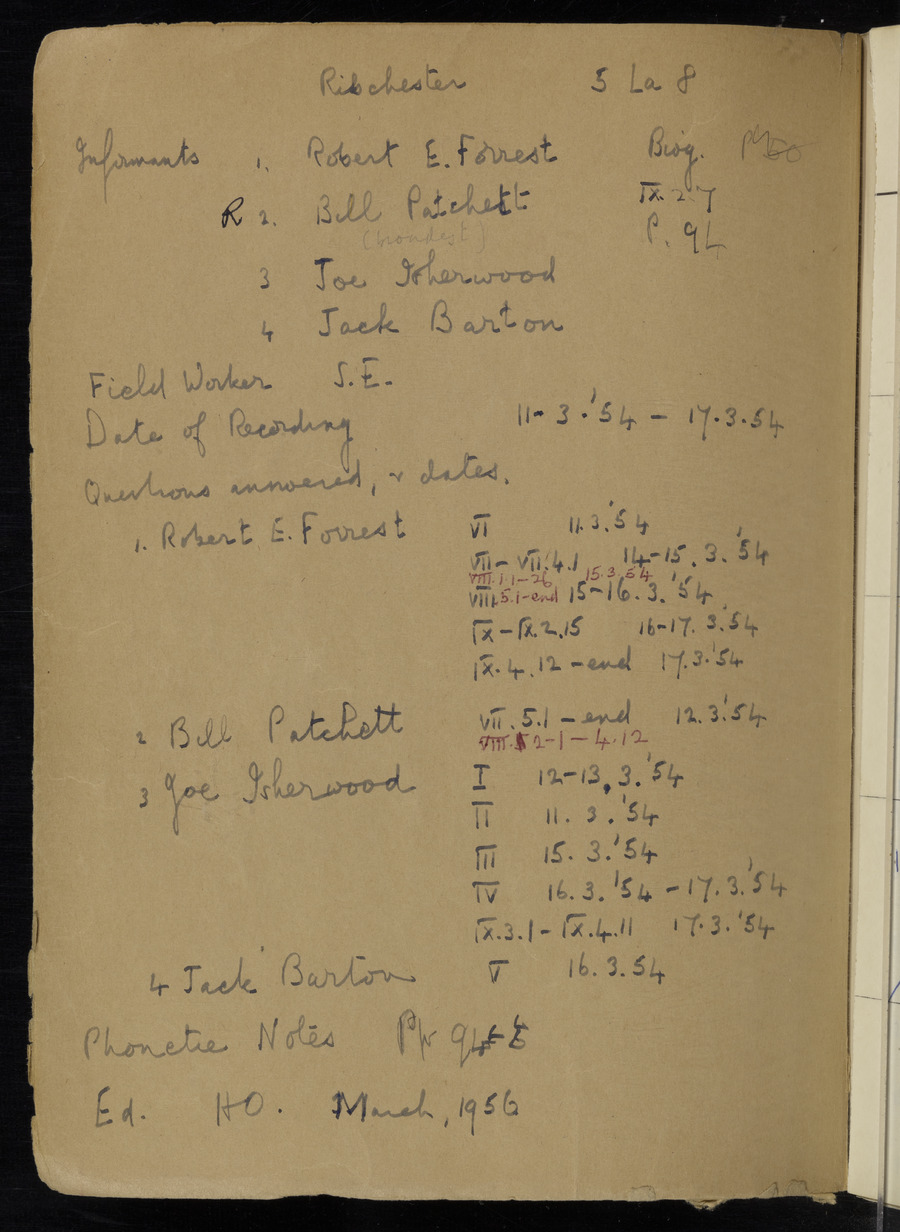 Ribchester 5 La 8
Informants 1. Robert E. Forrest Biog.
R 2. Bill Patchett IX.2.7
(broadest) P. 94
3 Joe Isherwood
4 Jack Barton
Field Worker S.E.
Date of Recording 11-3.'54 - 17.3.54
Questions answered, & dates.
1. Robert E. Forrest VI 11.3.'54
VII - VII.4.1 14-15.3.'54
VIII.1.1-26 15.3.54
VIII.5.1-end 15-16.3.'54
IX-IX.2.15 16-17.3.'54
IX.4.12-end 17.3.'54
2 Bill Patchett VII.5.1-end 12.3.'54
VIII. 2-1-4.12
3 Joe Isherwood I 12-13.3.'54
II 11.3.'54
III 15.3.'54
IV 16.3.'54 - 17.3.'54
IX.3.1-IX.4.11 17.3.'54
4 Jack Barton V 16.3.54
Phonetic Notes Pp 94
Ed. HO. March, 1956